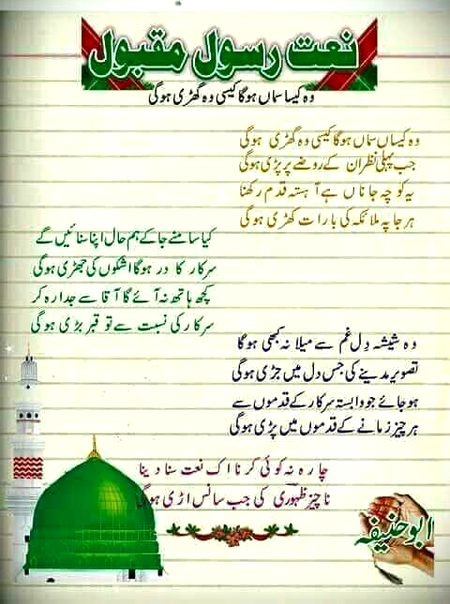 نعت رسول مقبول
وہ کیسا سماں ہوگا کیسی وہ گھڑی ہوگی
وہ کیساں سماں ہوگا کیسی وہ گھڑی ہوگی
جب پہلی نظر ان کے روضے پر پڑی ہوگی
یہ کوچہ جاناں ہے آہستہ قدم رکھنا
ہر جا پہ ملائکہ کی بارات کھڑی ہوگی
کیا سامنے جا کے ہم حال اپنا سنائیں گے
سرکار کا در ہوگا اشکوں کی جھڑی ہوگی
کچھ ہاتھ نہ آئے گا آقا سے جدا رہ کر
سرکار کی نسبت سے تو قبر بڑی ہوگی
وہ شیشہ دل غم سے میلا نہ کبھی ہوگا
تصویر مدینے کی جس دل میں جڑی ہوگی
ہو جائے جو وابستہ سرکار کے قدموں سے
ہر چیز زمانے کے قدموں میں پڑی ہوگی
چارہ نہ کوئی کرنا اک نعت سنا دینا
ناچیز ظہوری کی جب سانس اڑی ہوگی
ابو حنیفہ